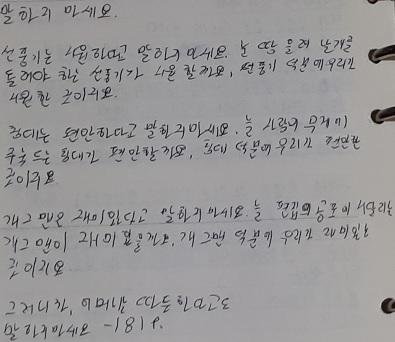 말하지 마세요.
선풍기는 시원하다고 말하지 마세요. 늘 땀 흘려 날개를
돌려야 하는 선풍기가 시원할까요, 선풍기 덕분에 우리가
시원한 것이지요.
침대는 편안하다고 말하지마세요. 늘 사람의 무게에
짓눌 드는 침대가 편안할까요, 침대 덕분에 우리가 편안한
것이지요.
개그맨은 재미있다고 말하지마세요. 늘 편집의 공포에 시달리는
개그맨이 재미있을까요, 개그맨 덕분에 우리가 재미있는
것이지요
그러니까, 어머님 따뜻하다고도
말하지마세요 -181P.